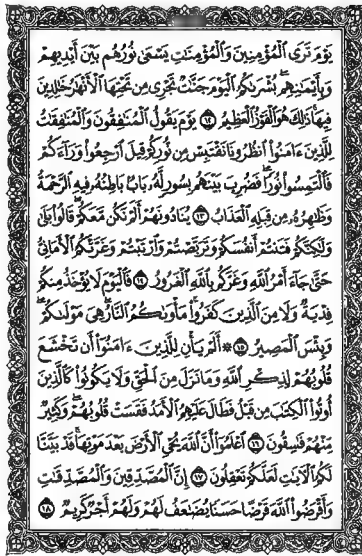 يَوْمَ تَرَى ٱلْمُؤْمِنِينَ وَٱلْمُؤْمِنَٰتِ يَسْعَىٰ نُورُهُم بَيْنَ أَيْدِيهِمْ
وَبِأَيْمَٰنِهِم بُشْرَىٰكُمُ ٱلْيَوْمَ جَنَّٰتٌ تَجْرِى مِن تَحْتِهَا ٱلْأَنْهَٰرُ خَٰلِدِينَ
فِيهَا ۚ ذَٰلِكَ هُوَ ٱلْفَوْزُ ٱلْعَظِيمُ ١٢ يَوْمَ يَقُولُ ٱلْمُنَٰفِقُونَ وَٱلْمُنَٰفِقَٰتُ
لِلَّذِينَ ءَامَنُوا۟ ٱنظُرُونَا نَقْتَبِسْ مِن نُّورِكُمْ قِيلَ ٱرْجِعُوا۟ وَرَآءَكُمْ
فَٱلْتَمِسُوا۟ نُورًا فَضُرِبَ بَيْنَهُم بِسُورٍ لَّهُۥ بَابٌۢ بَاطِنُهُۥ فِيهِ ٱلرَّحْمَةُ
وَظَٰهِرُهُۥ مِن قِبَلِهِ ٱلْعَذَابُ ١٣ يُنَادُونَهُمْ أَلَمْ نَكُن مَّعَكُمْ ۖ قَالُوا۟ بَلَىٰ
وَلَٰكِنَّكُمْ فَتَنتُمْ أَنفُسَكُمْ وَتَرَبَّصْتُمْ وَٱرْتَبْتُمْ وَغَرَّتْكُمُ ٱلْأَمَانِىُّ
حَتَّىٰ جَآءَ أَمْرُ ٱللَّهِ وَغَرَّكُم بِٱللَّهِ ٱلْغَرُورُ ١٤ فَٱلْيَوْمَ لَا يُؤْخَذُ مِنكُمْ
فِدْيَةٌ وَلَا مِنَ ٱلَّذِينَ كَفَرُوا۟ ۚ مَأْوَىٰكُمُ ٱلنَّارُ ۖ هِىَ مَوْلَىٰكُمْ ۖ
وَبِئْسَ ٱلْمَصِيرُ ١٥ ۞ أَلَمْ يَأْنِ لِلَّذِينَ ءَامَنُوٓا۟ أَن تَخْشَعَ
قُلُوبُهُمْ لِذِكْرِ ٱللَّهِ وَمَا نَزَلَ مِنَ ٱلْحَقِّ وَلَا يَكُونُوا۟ كَٱلَّذِينَ
أُوتُوا۟ ٱلْكِتَٰبَ مِن قَبْلُ فَطَالَ عَلَيْهِمُ ٱلْأَمَدُ فَقَسَتْ قُلُوبُهُمْ ۖ وَكَثِيرٌ
مِّنْهُمْ فَٰسِقُونَ ١٦ ٱعْلَمُوٓا۟ أَنَّ ٱللَّهَ يُحْىِ ٱلْأَرْضَ بَعْدَ مَوْتِهَا ۚ قَدْ بَيَّنَّا
لَكُمُ ٱلْءَايَٰتِ لَعَلَّكُمْ تَعْقِلُونَ ١٧ إِنَّ ٱلْمُصَّدِّقِينَ وَٱلْمُصَّدِّقَٰتِ
وَأَقْرَضُوا۟ ٱللَّهَ قَرْضًا حَسَنًا يُضَٰعَفُ لَهُمْ وَلَهُمْ أَجْرٌ كَرِيمٌ ١٨